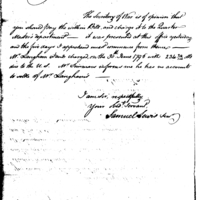 The Secretary of War is of opinion that
you should pay the within Bill and charge it to the Quarter
Master's department. It was presented at this office yesterday
and the five days I apprehend must commence from thence
Mr Langham stands charged on the 30th June 1796 with
due to the U.S. Mr Simmons informs me he has no account
to settle of Mr Langham's
I am Sir, respectfully
Your Obed. Servant
Samuel Lewis Senr